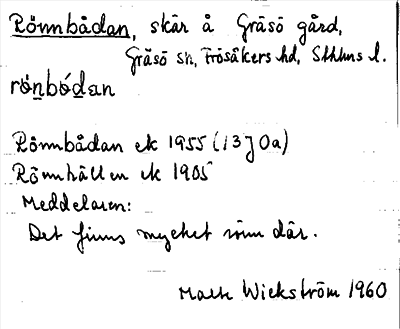 Rönnbådan, skär å Gräsö gård,
Gräsö sn, Frösåkers hd, Sthlms l.
rönbódan
Rönnbådan ek 1955 (13J 0a)
Rönnhällen ek 1905
Meddelaren:
Det finns mycket rönn där.
Malte Wickström 1960